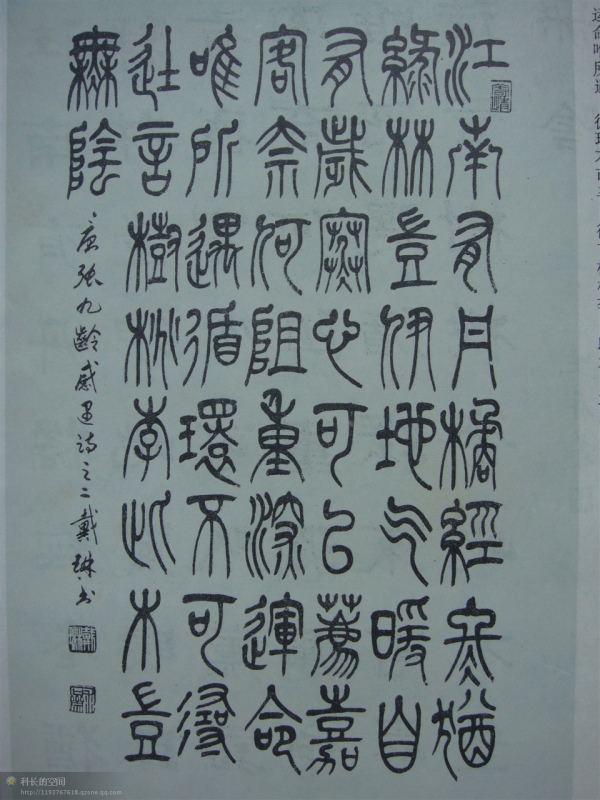 江南有丹橘經冬猶
綠林豈伊地气暖自
有歲寒心可以薦嘉
客奈何阻重深運命
唯所遇循環不可尋
徒言樹桃李此木豈
無陰
唐張九齡感遇詩之二戴琳书
科长的空间
http://1193767618.qzone.qq.com